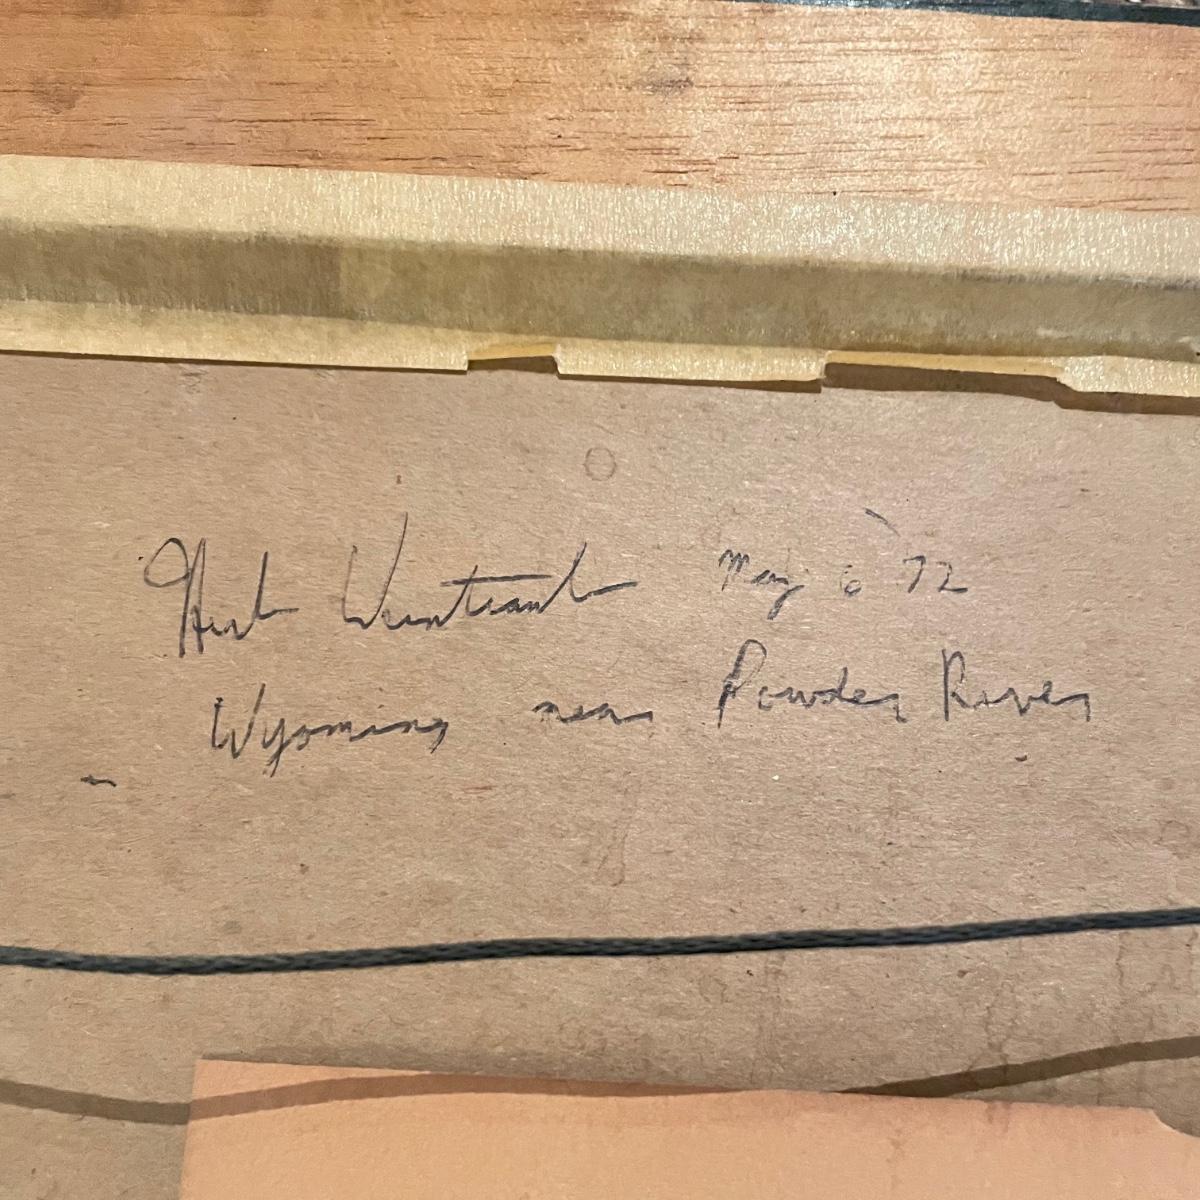 Herb Weintraub May 6 '72
Wyoming near Powder River